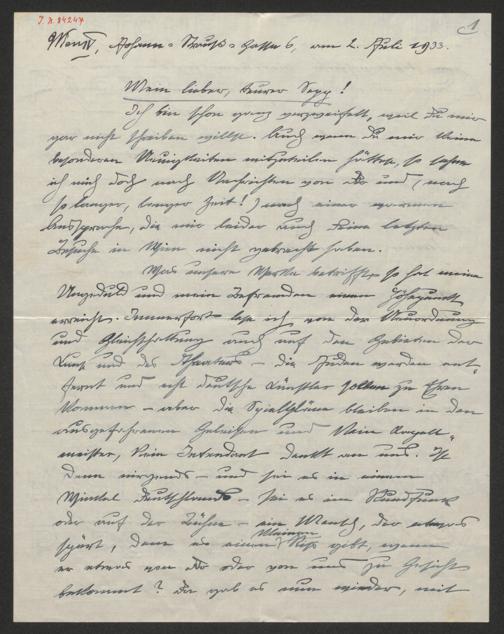 J. N. 84247
1
Wien IV, Johann-Strauß-Gasse 6, am 2. Juli 1933.
Mein lieber, teurer Sepp!
Ich bin schon ganz verzweifelt, weil Du mir
gar nicht schreiben willst. Auch wenn Du mir keine
besonderen Neuigkeiten mitzuteilen hättest, so sehne
ich mich doch nach Nachrichten von Dir und (nach
so langer, langer Zeit!) nach einer
Aussprache, die mir leider auch Deine letzten
Besuche in Wien nicht gebracht haben.
Was unsere Werke betrifft, so hat meine
Ungeduld und mein Befremden einen Höhepunkt
erreicht. Immerfort lese ich von der Neuordnung
und Gleichschaltung auch auf den Gebieten der
Kunst und des Theaters – die Juden werden ent-
fernt und echt deutsche Künstler sollen zu Ehren
kommen – aber die Spielpläne bleiben in den
ausgefahrenen Geleisen und kein Kapell-
meister, kein Intendant denkt an uns. Ist
denn nirgends – und sei es in einem
Winkel Deutschlands – sei es im Rundfunk
oder auf der Bühne – ein Mensch, der etwas
spürt, dem es einen kleinen Riß gibt, wenn
er etwas von Dir oder von uns zu Gesicht
bekommt? Da gab es nun wieder, mit